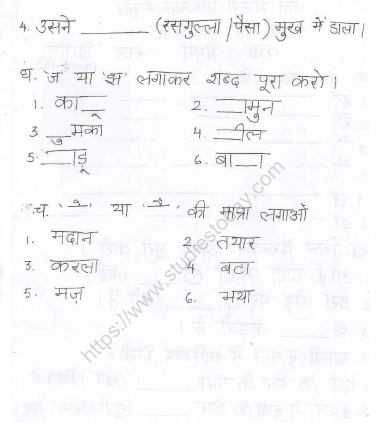 4. उसने ______ (रसगुल्ला / पैसा) मुख में डाला।
घ. 'ज' या 'झ' लगाकर शब्द पूरा करो।
1. का__ू 2. __ामुन
3. __ुमका 4. __ील
5. __ाड़ू 6. बा__ा
च. ' े ' या ' ै ' की मात्रा लगाओ
1. मदान 2. तयार
3. करला 4. बटा
5. मज़ 6. भया
https://www.studiestoday.com